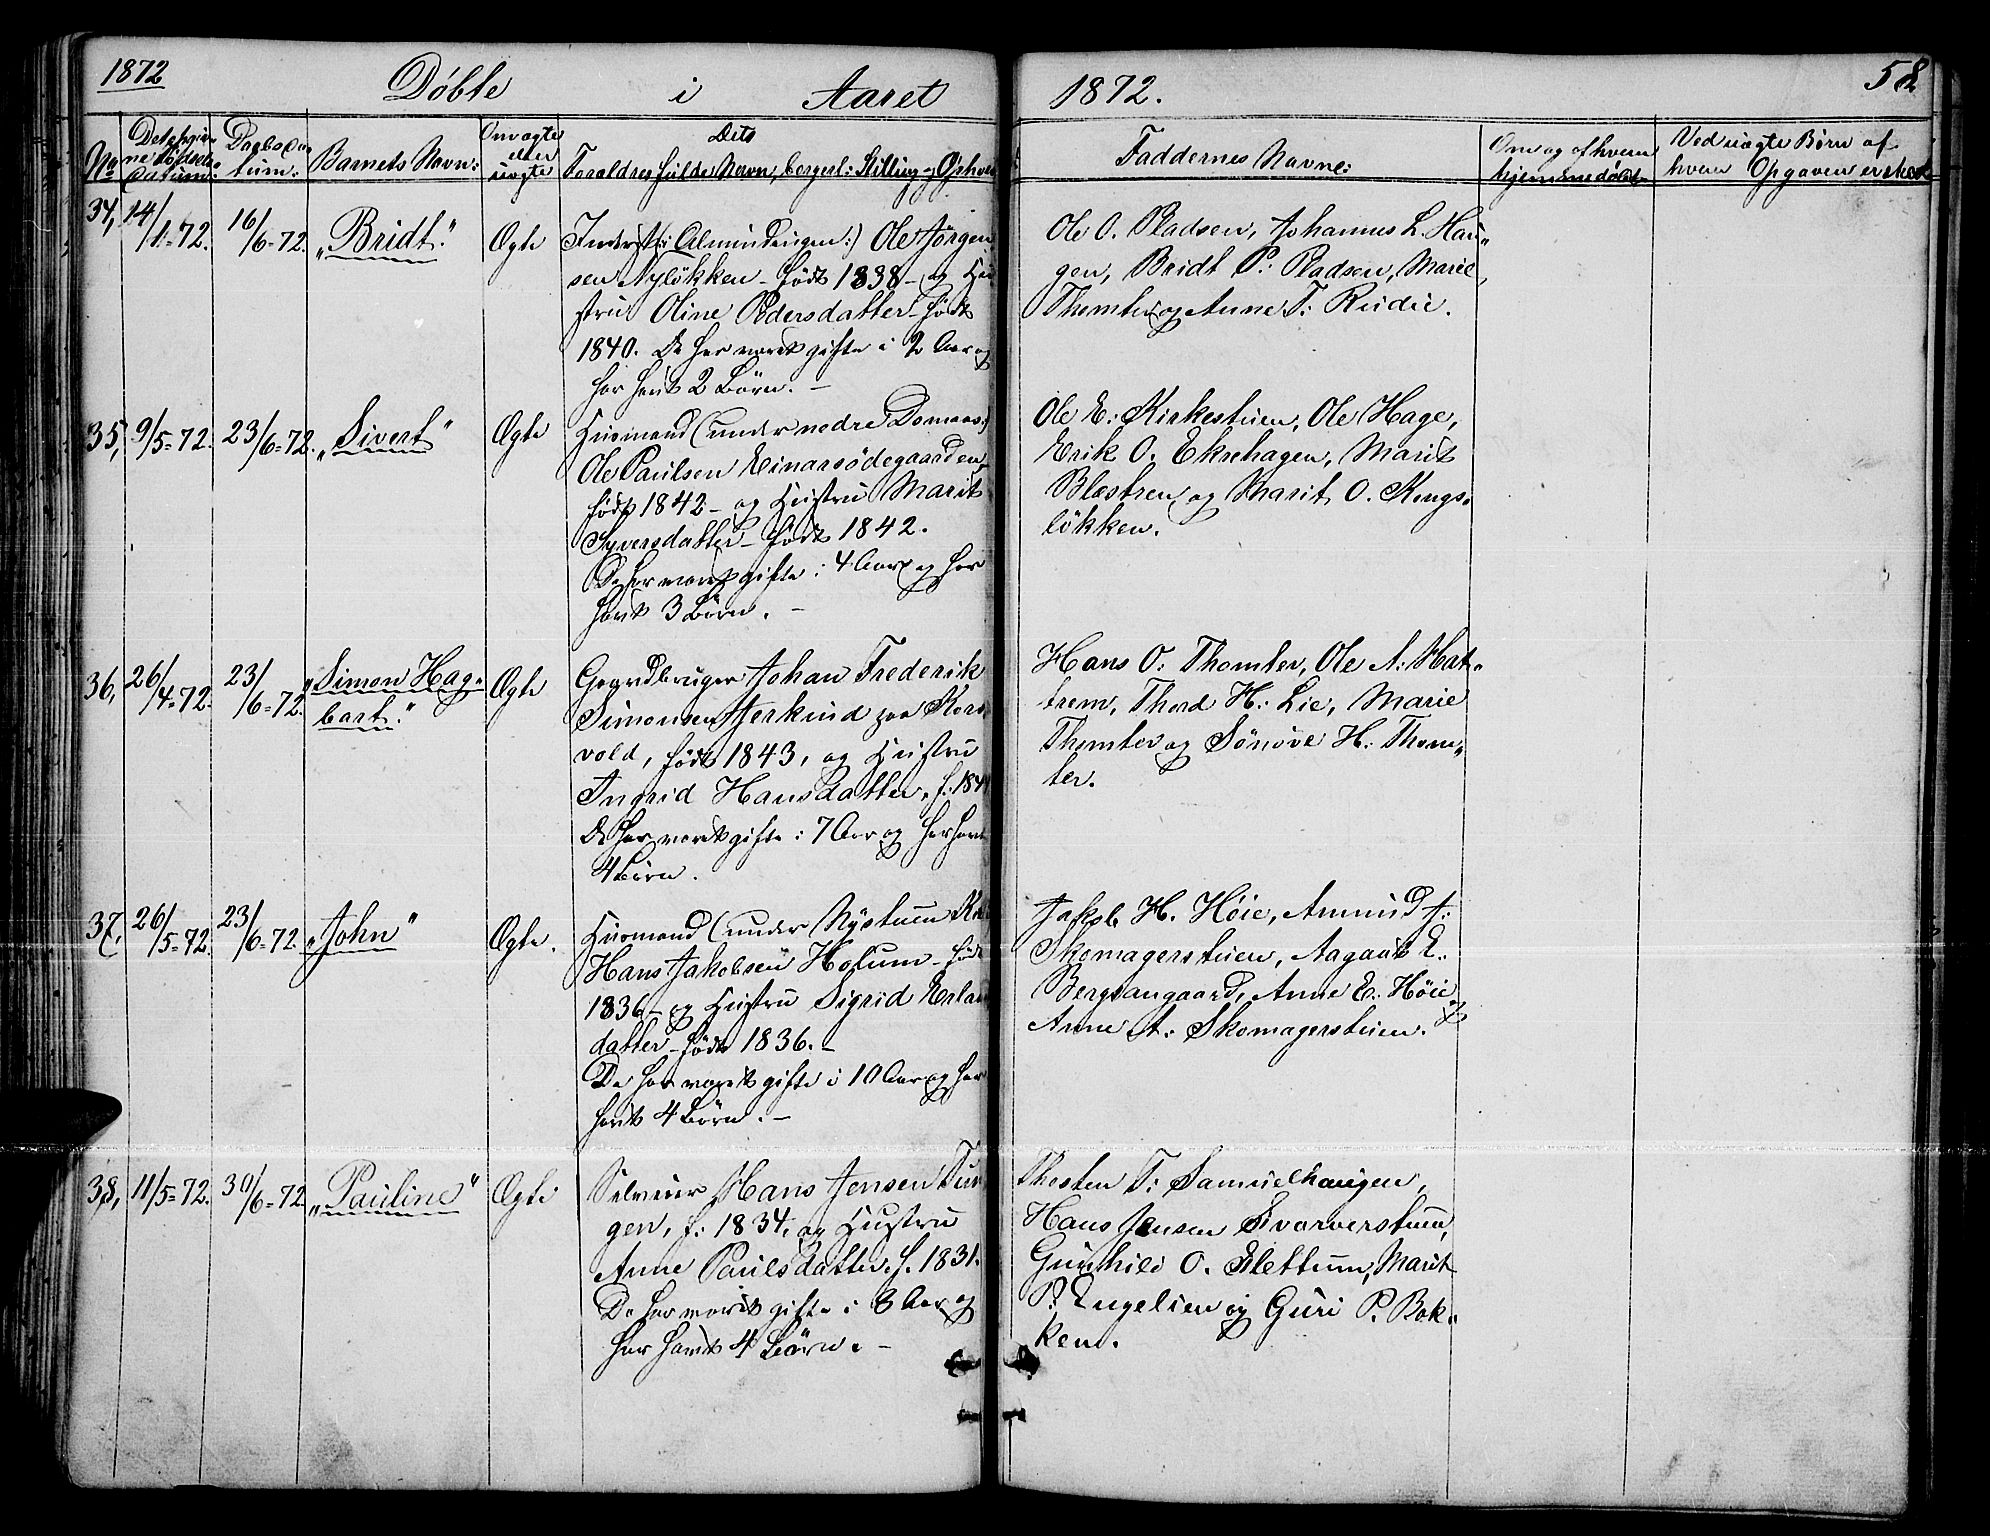 1872
Döbte i Aaret
1872.
58
No
Datum:
Daabsda-
tum:
Barnets Navn:
Om ægte
eller
uægte
Dets
Forældres fulde Navn, borgerl: Stilling og Ophold
Faddernes Navne:
Om og af hvem
hjemmedøbt
Ved uægte Børn af
hvem Opgaven er skeet
34, 14/1-72. 16/6-72. "Bridt." Ægte
Inderst (: Almindingen:) Ole Jørgen-
sen Nyløkken - født 1838 - og Hu-
stru Oline Pedersdatter - født
1840. De har været gifte i 2 Aar og
har havt 2 Børn. -
Ole O. Pladsen, Johannes L. Hau-
gen, Bridt P: Pladsen, Marie
Thomter og Anne T: Rudie.
35, 9/5-72. 23/6-72. "Sivert" Ægte
Husmand (under nedre Domaas:)
Ole Paulsen Einarsödegaarden
født 1842 - og Hustru Marit
Syversdatter - født 1842.
De har været gifte i 4 Aar og har
havt 3 Børn. -
Ole E: Kirkestuen, Ole Hage,
Erik O. Ekrehagen, Marit
Blæstren og Marit O. Kongs-
løkken.
36, 26/4-72. 23/6-72. "Simon Hag-
bart." Ægte
Gaardbruger Johan Frederik
Simonsen Hjerkind paa Kors-
vold, født 1843, og Hustru
Ingrid Hansdatter, f: 184
De har været gifte i 7 Aar og har havt
4 Børn.
Hans O: Thomter, Ole A: Hat-
trem, Thord H: Lie, Marie
Thomter og Sönöve H: Thom-
ter.
37, 26/5-72. 23/6-72 "John" Ægte.
Husmand (under Nystuen
Hans Jakobsen Holum - født
1836 - og Hustru Sigrid Erlan
datter - født 1836. -
De har været gifte i 10 Aar og har
havt 4 Børn. -
Jakob H. Höie, Amund J:
Skomagerstuen, Aagaat E.
Bergvangaard, Anne E: Höie og
Anne A: Skomagerstuen.
38, 11/5-72. 30/6-72. "Pauline" Ægte
Selveier Hans Jensen Tun
gen, f: 1834, og Hustru
Anne Paulsdatter f. 1831.
De har været gifte i 8 Aar og
har havt 4 Børn. -
Thosten T: Samuelhaugen,
Hans Jensen Svarverstuen,
Gunhild O. Slettum, Marit
P: Engelien og Guri P. Bak-
ken.